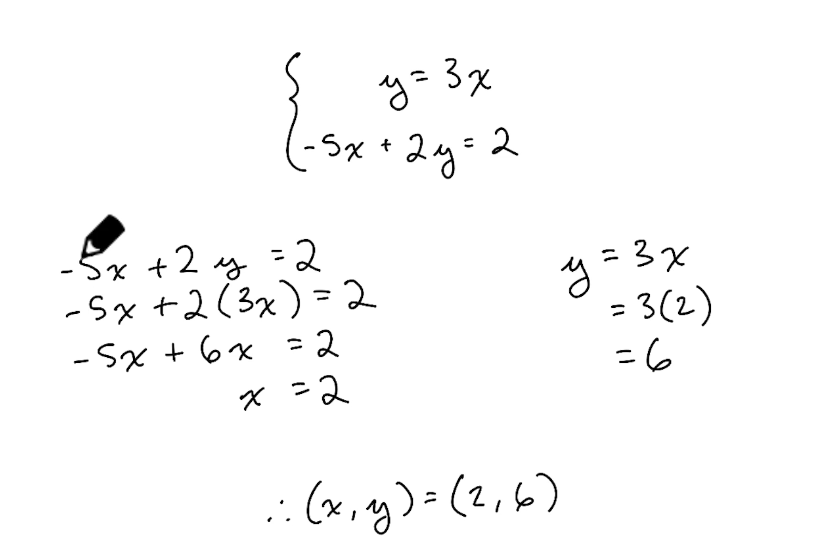 y = 3x
-5x + 2y = 2
-5x + 2y = 2
-5x + 2(3x) = 2
-5x + 6x = 2
x = 2
y = 3x
= 3(2)
= 6
∴ (x, y) = (2, 6)